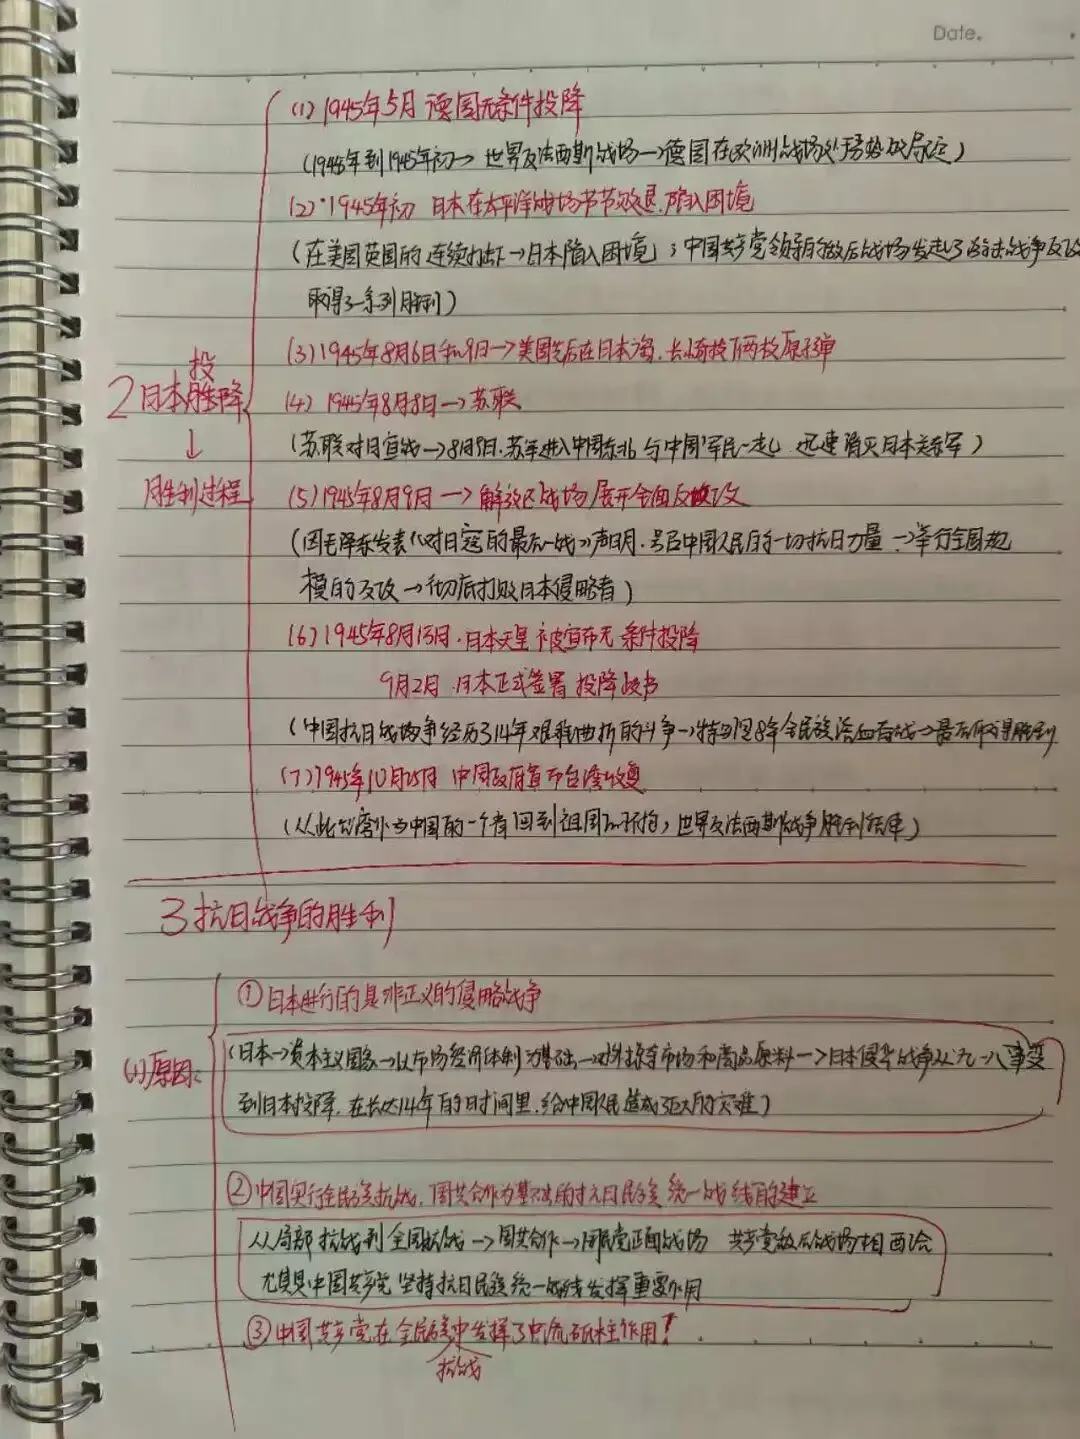 Date.
(1) 1945年5月 德国无条件投降
(1945年到1945年初→世界反法西斯战场→德国在欧洲战场处 局定)
(2) 1945年初 日本在太平洋战场节节败退,陷入困境
(在美国英国的连续打击下→日本陷入困境;中国共产党领导的敌后战场发起了 战争反攻
取得了一系列胜利)
(3) 1945年8月6日和9日→美国先后在日本 长崎投下两枚原子弹
投
(4) 1945年8月8日→苏联
2日本胜降
(苏联对日宣战→8月9日.苏军进入中国东北 与中国军民一起 迅速消灭日本关东军)
↓
胜利过程
(5) 1945年8月9日→解放区战场展开全面反攻
(因毛泽东发表《对日寇的最后一战》声明.号召中国人民的一切抗日力量→举行全国规
模的反攻→彻底打败日本侵略者)
(6) 1945年8月15日.日本天皇被宣布无条件投降
9月2日.日本正式签署投降书
(中国抗日战争经历了14年艰难曲折的斗争→特别是8年全民族浴血奋战→最后取得胜利
(7) 1945年10月25日 中国政府宣布台湾收复
(从此 中国的一个省回到祖国 ,世界反法西斯战争胜利结束)
3抗日战争的胜利
①日本进行的是非正义的侵略战争
(1)原因:
(日本→资本主义国家→以市场经济体制为基础→ 市场和商品原料→日本侵华战争从九一八事变
到日本投降,在长达14年的时间里,给中国人民造成巨大的灾难)
②中国实行全民族抗战,国共合作为基础的抗日民族统一战线的建立
从局部抗战到全国抗战→国共合作→国民党正面战场 共产党敌后战场相配合
尤其是中国共产党坚持抗日民族统一战线发挥重要作用
③中国共产党在全民族中发挥了中流砥柱作用!
抗战